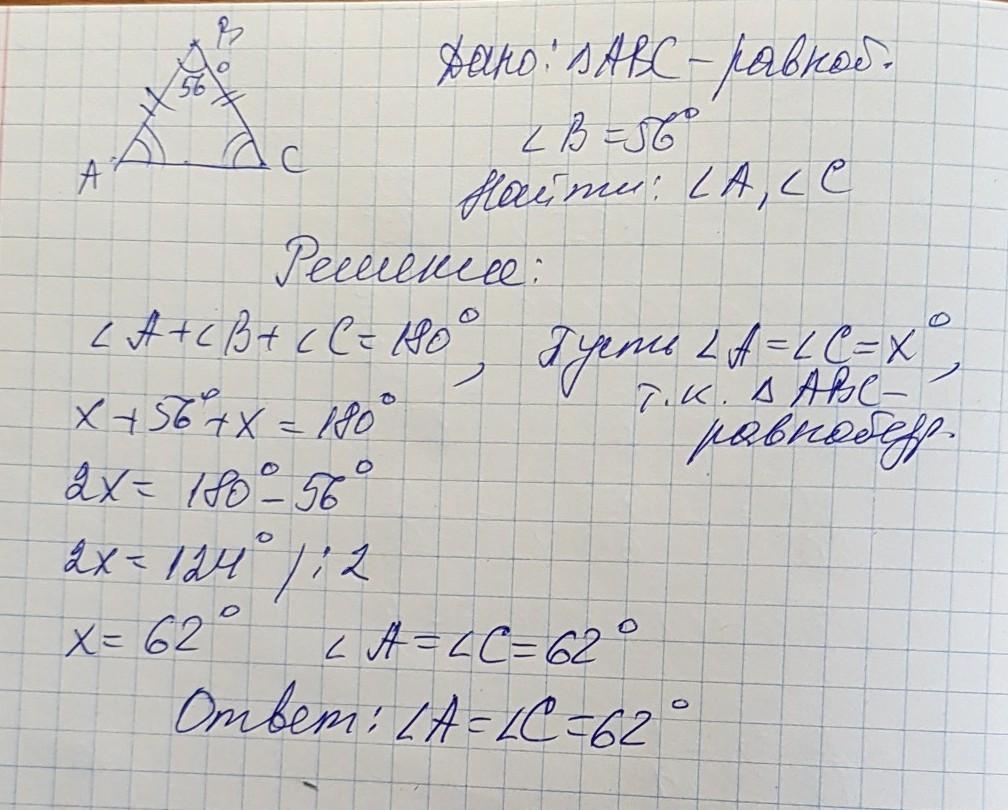 B
56°
A
C
Дано: ΔABC - равноб.
∠B = 56°
Найти: ∠A, ∠C
Решение:
∠A + ∠B + ∠C = 180°, Пусть ∠A = ∠C = x°,
т.к. ΔABC -
равнобедр.
x + 56° + x = 180°
2x = 180° - 56°
2x = 124° /:2
x = 62° ∠A = ∠C = 62°
Ответ: ∠A = ∠C = 62°